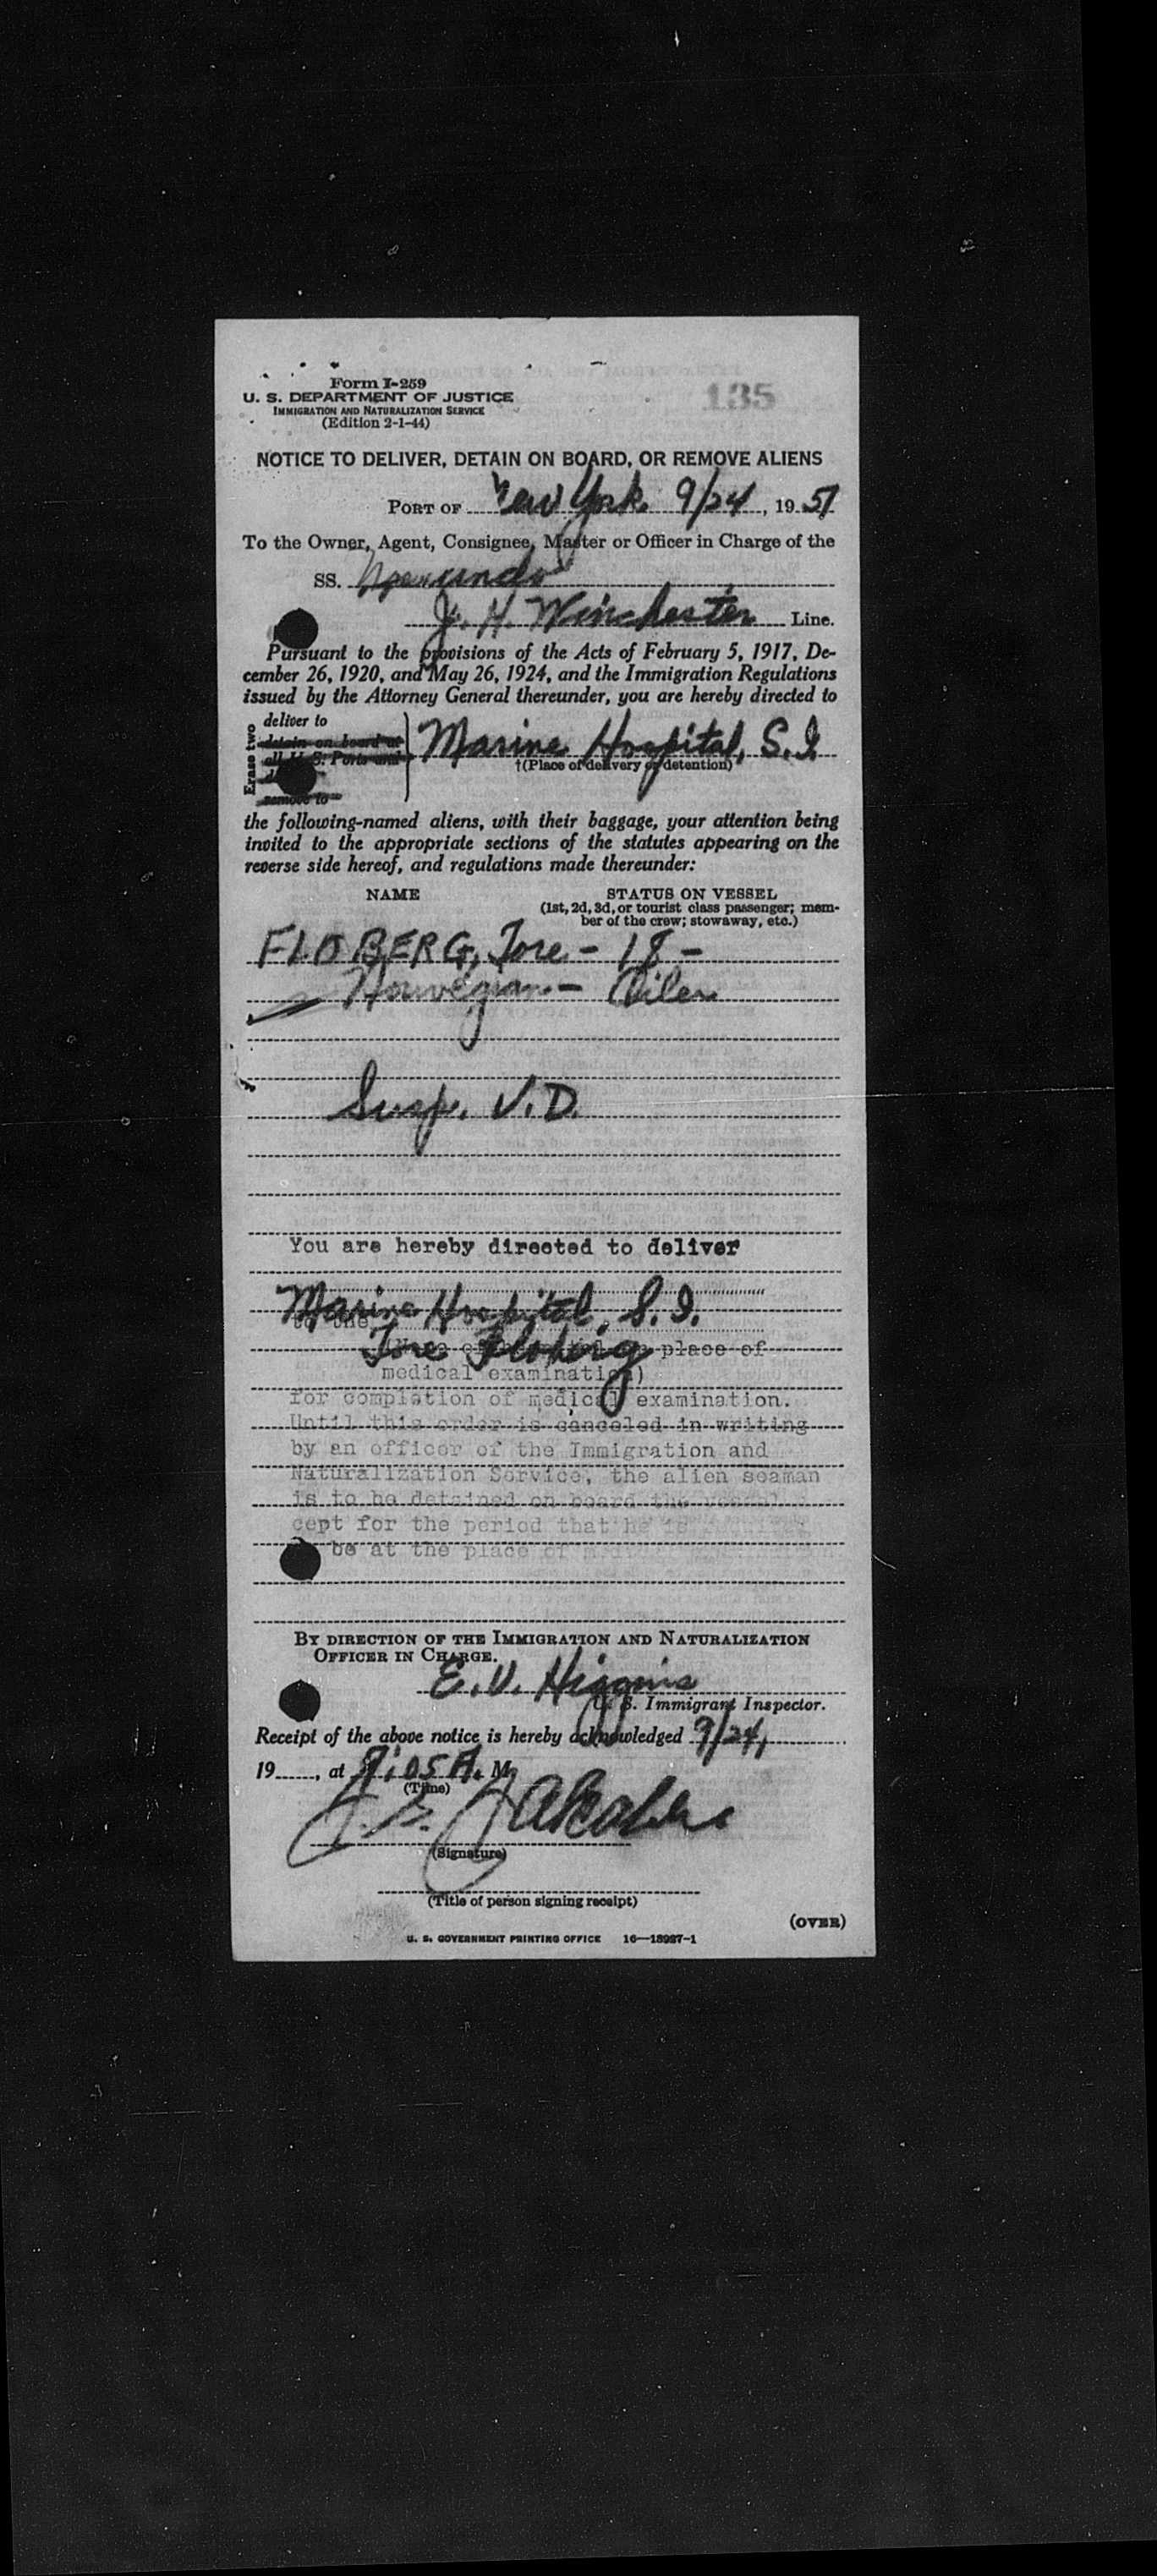 Form I-259
U. S. DEPARTMENT OF JUSTICE
IMMIGRATION AND NATURALIZATION SERVICE
(Edition 2-1-44)
135
NOTICE TO DELIVER, DETAIN ON BOARD, OR REMOVE ALIENS
PORT OF New York 9/24, 1951
To the Owner, Agent, Consignee, Master or Officer in Charge of the
SS.
J. H. Winchester Line.
Pursuant to the provisions of the Acts of February 5, 1917, De-
cember 26, 1920, and May 26, 1924, and the Immigration Regulations
issued by the Attorney General thereunder, you are hereby directed to
Erase two
deliver to
detain on board at
all U. S. Ports and
remove to
Marine Hospital, S.I.
†(Place of delivery or detention)
the following-named aliens, with their baggage, your attention being
invited to the appropriate sections of the statutes appearing on the
reverse side hereof, and regulations made thereunder:
NAME STATUS ON VESSEL
(1st, 2d, 3d, or tourist class passenger; mem-
ber of the crew; stowaway, etc.)
FLOBERG, Tore - 18 -
Norwegian - Oiler
Susp. V.D.
You are hereby directed to deliver
Marine Hospital, S.I.
to the
Tore Floberg
place of
medical examination)
for completion of medical examination.
Until this order is canceled in writing
by an officer of the Immigration and
Naturalization Service, the alien seaman
is to be detained on board the vessel
cept for the period that he is
be at the place of
BY DIRECTION OF THE IMMIGRATION AND NATURALIZATION
OFFICER IN CHARGE.
E.V. Higgins
U. S. Immigrant Inspector.
Receipt of the above notice is hereby acknowledged 9/24,
19____, at 9:05 A. M.
(Time)
(Signature)
(Title of person signing receipt)
(OVER)
U. S. GOVERNMENT PRINTING OFFICE 16—18987-1